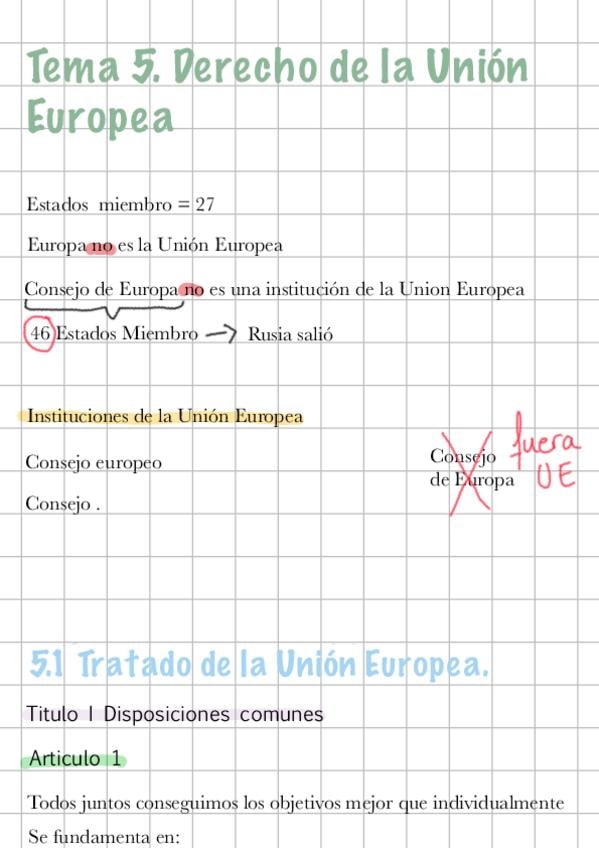 Tema 5. Derecho de la Unión
Europea
Estados miembro = 27
Europa no es la Unión Europea
Consejo de Europa no es una institución de la Union Europea
46 Estados Miembro → Rusia salió
Instituciones de la Unión Europea
Consejo europeo
Consejo .
Consejo
de Europa
fuera
UE
5.1 Tratado de la Unión Europea.
Titulo I Disposiciones comunes
Articulo 1
Todos juntos conseguimos los objetivos mejor que individualmente
Se fundamenta en: